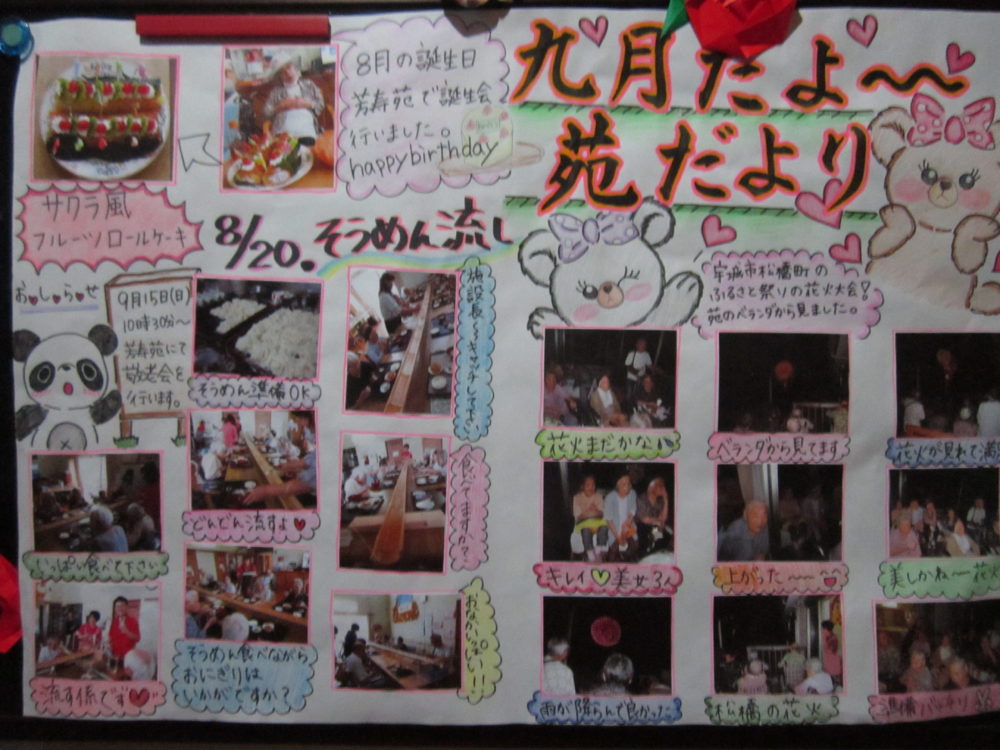 九月だよ～～
苑だより
8月の誕生日
芳寿苑で誕生会
行いました。
happybirthday
サクラ風
フルーツロールケーキ
8/20.そうめん流し
お・し・ら・せ
9月15日(日)
10時30分～
芳寿苑にて
敬老会を
行います。
そうめん準備OK
どんどん流すよ
いっぱい食べて下さい
流す係です
そうめん食べながら
おにぎりは
いかがですか?
食べてますか?
おなかいっぱいー!!
宇城市松橋町の
ふるさと祭りの花火大会!
苑のベランダから見ました。
花火まだかな
ベランダから見てます
花火が見れて満
キレイ♡美女3人
上がった～～
美しかね～花火
雨が降らんで良かった
松橋の花火
準備バッチリ